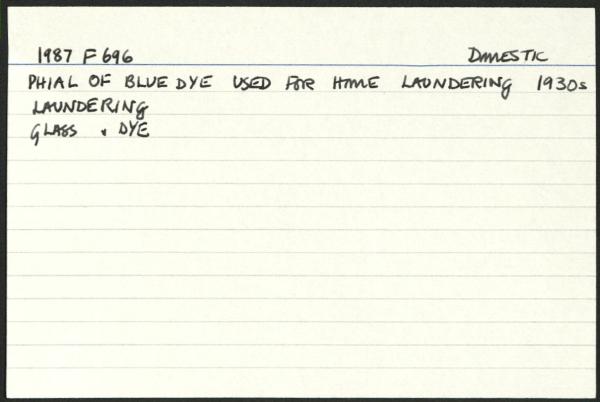 1987 F 696 DOMESTIC
PHIAL OF BLUE DYE USED FOR HOME LAUNDERING 1930s
LAUNDERING
GLASS & DYE